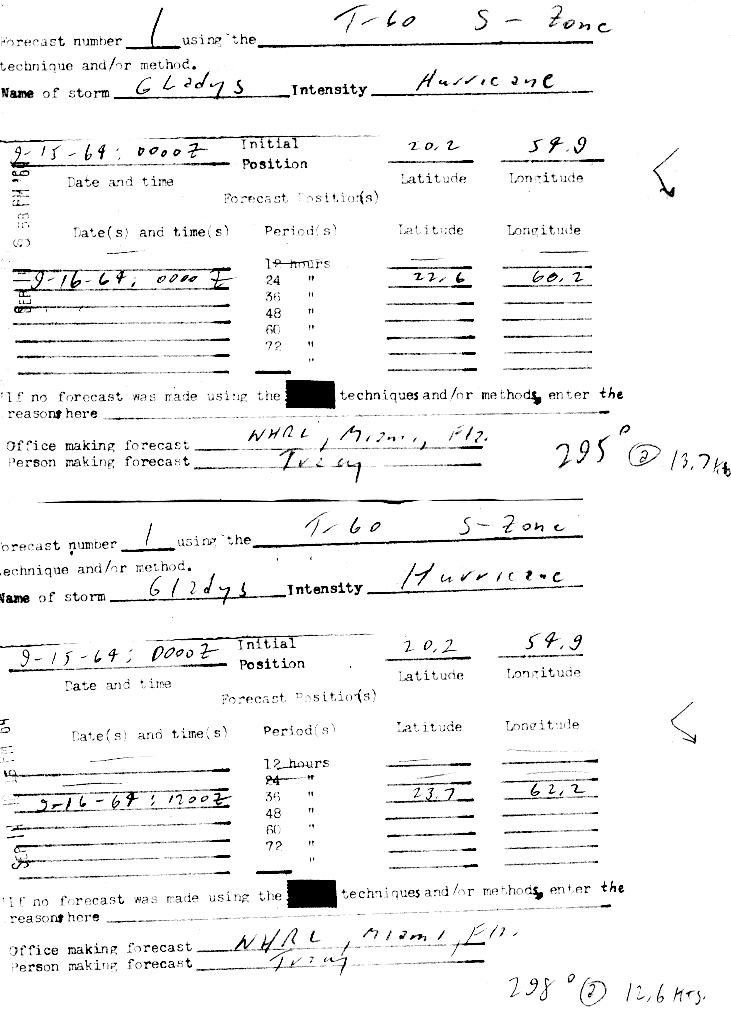 T-60 S-Zone
Forecast number 1 using the
technique and/or method.
Name of storm Gladys Intensity Hurricane
9-15-64; 0000Z Initial Position 20.2 54.9
Date and time Latitude Longitude
Forecast Position(s)
Date(s) and time(s) Period(s) Latitude Longitude
12 hours
9-16-64; 0000Z 24 " 22.6 60.2
36 "
48 "
60 "
72 "
"
If no forecast was made using the techniques and/or methods, enter the
reasons here
Office making forecast NHRL, Miami, Fla.
Person making forecast Tracy
295° @ 13.7 kts
T-60 S-Zone
orecast number 1 using the
echnique and/or method.
Name of storm Gladys Intensity Hurricane
9-15-64; 0000Z Initial Position 20.2 54.9
Date and time Latitude Longitude
Forecast Position(s)
Date(s) and time(s) Period(s) Latitude Longitude
12 hours
24 "
9-16-64; 1200Z 36 " 23.7 62.2
48 "
60 "
72 "
"
If no forecast was made using the techniques and/or methods, enter the
reasons here
Office making forecast NHRL, Miami, Fla.
Person making forecast Tracy
298° @ 12.6 Kts.